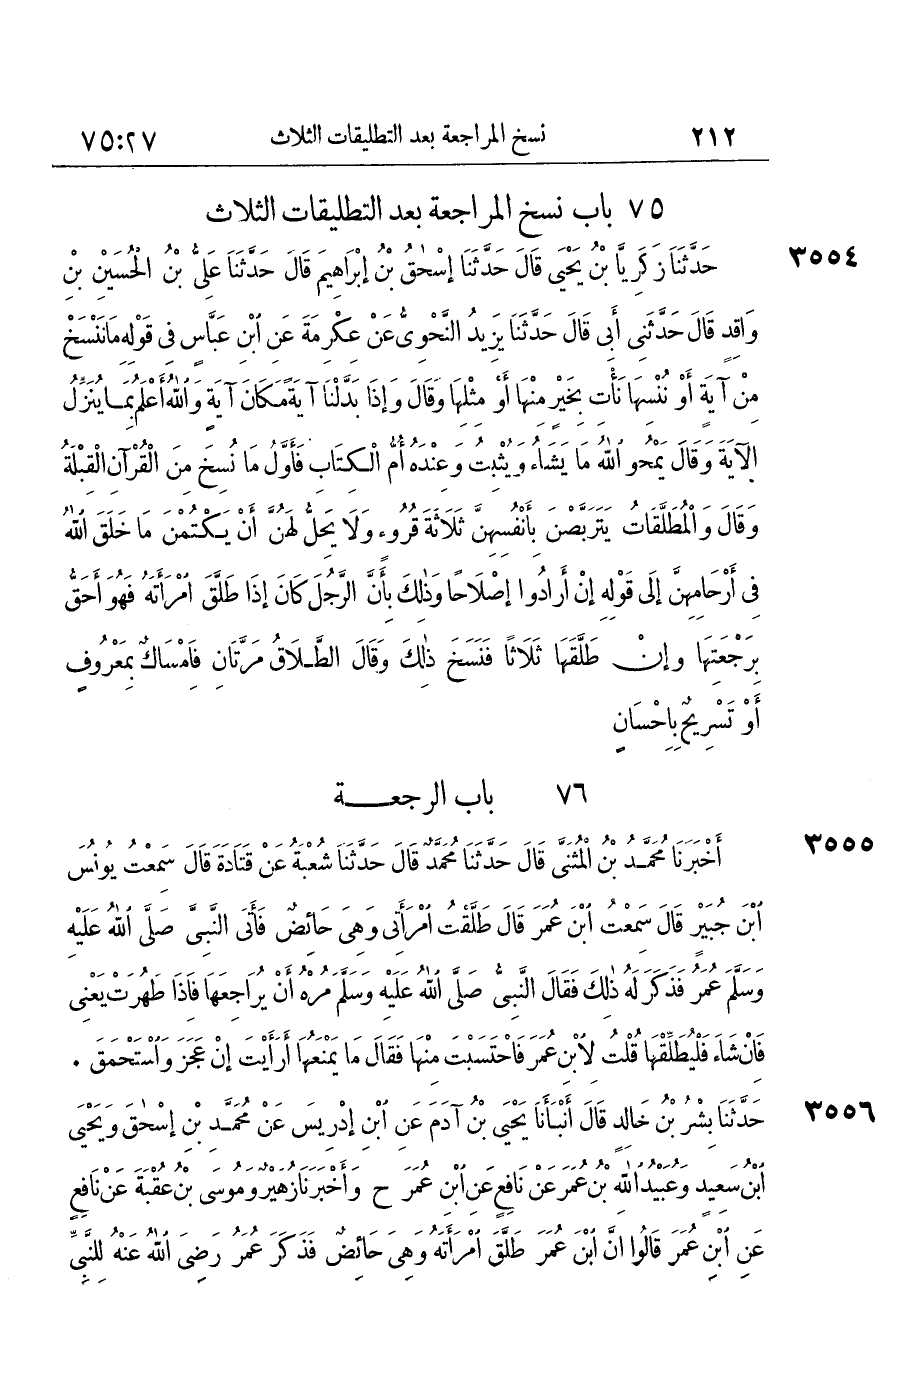 ٢١٢ نسخ المراجعة بعد التطليقات الثلاث ٢٧:٧٥
٧٥ باب نسخ المراجعة بعد التطليقات الثلاث
٣٥٥٤ حَدَّثَنَا زَكَرِيَّا بْنُ يَحْيَى قَالَ حَدَّثَنَا إِسْحٰقُ بْنُ إِبْرَاهِيمَ قَالَ حَدَّثَنَا عَلِيُّ بْنُ الْحُسَيْنِ بْنِ
وَاقِدٍ قَالَ حَدَّثَنِي أَبِي قَالَ حَدَّثَنَا يَزِيدُ النَّحْوِيُّ عَنْ عِكْرِمَةَ عَنِ ابْنِ عَبَّاسٍ فِي قَوْلِهِ مَا نَنْسَخْ
مِنْ آيَةٍ أَوْ نُنْسِهَا نَأْتِ بِخَيْرٍ مِنْهَا أَوْ مِثْلِهَا وَقَالَ وَإِذَا بَدَّلْنَا آيَةً مَكَانَ آيَةٍ وَاللّٰهُ أَعْلَمُ بِمَا يُنَزِّلُ
الْآيَةَ وَقَالَ يَمْحُو اللّٰهُ مَا يَشَاءُ وَيُثْبِتُ وَعِنْدَهُ أُمُّ الْكِتَابِ فَأَوَّلُ مَا نُسِخَ مِنَ الْقُرْآنِ الْقِبْلَةُ
وَقَالَ وَالْمُطَلَّقَاتُ يَتَرَبَّصْنَ بِأَنْفُسِهِنَّ ثَلَاثَةَ قُرُوءٍ وَلَا يَحِلُّ لَهُنَّ أَنْ يَكْتُمْنَ مَا خَلَقَ اللّٰهُ
فِي أَرْحَامِهِنَّ إِلَى قَوْلِهِ إِنْ أَرَادُوا إِصْلَاحًا وَذٰلِكَ بِأَنَّ الرَّجُلَ كَانَ إِذَا طَلَّقَ امْرَأَتَهُ فَهُوَ أَحَقُّ
بِرَجْعَتِهَا وَإِنْ طَلَّقَهَا ثَلَاثًا فَنَسَخَ ذٰلِكَ وَقَالَ الطَّلَاقُ مَرَّتَانِ فَإِمْسَاكٌ بِمَعْرُوفٍ
أَوْ تَسْرِيحٌ بِإِحْسَانٍ
٧٦ باب الرجعة
٣٥٥٥ أَخْبَرَنَا مُحَمَّدُ بْنُ الْمُثَنَّى قَالَ حَدَّثَنَا مُحَمَّدٌ قَالَ حَدَّثَنَا شُعْبَةُ عَنْ قَتَادَةَ قَالَ سَمِعْتُ يُونُسَ
ابْنَ جُبَيْرٍ قَالَ سَمِعْتُ ابْنَ عُمَرَ قَالَ طَلَّقْتُ امْرَأَتِي وَهِيَ حَائِضٌ فَأَتَى النَّبِيَّ صَلَّى اللّٰهُ عَلَيْهِ
وَسَلَّمَ عُمَرُ فَذَكَرَ لَهُ ذٰلِكَ فَقَالَ النَّبِيُّ صَلَّى اللّٰهُ عَلَيْهِ وَسَلَّمَ مُرْهُ أَنْ يُرَاجِعَهَا فَإِذَا طَهُرَتْ يَعْنِي
فَإِنْ شَاءَ فَلْيُطَلِّقْهَا قُلْتُ لِابْنِ عُمَرَ فَاحْتَسَبْتَ مِنْهَا فَقَالَ مَا يَمْنَعُهَا أَرَأَيْتَ إِنْ عَجَزَ وَاسْتَحْمَقَ .
٣٥٥٦ حَدَّثَنَا بِشْرُ بْنُ خَالِدٍ قَالَ أَنْبَأَنَا يَحْيَى بْنُ آدَمَ عَنِ ابْنِ إِدْرِيسَ عَنْ مُحَمَّدِ بْنِ إِسْحٰقَ وَيَحْيَى
ابْنُ سَعِيدٍ وَعُبَيْدُ اللّٰهِ بْنُ عُمَرَ عَنْ نَافِعٍ عَنِ ابْنِ عُمَرَ ح وَأَخْبَرَنَا زُهَيْرٌ وَمُوسَى بْنُ عُقْبَةَ عَنْ نَافِعٍ
عَنِ ابْنِ عُمَرَ قَالُوا انَّ ابْنَ عُمَرَ طَلَّقَ امْرَأَتَهُ وَهِيَ حَائِضٌ فَذَكَرَ عُمَرُ رَضِيَ اللّٰهُ عَنْهُ لِلنَّبِيِّ